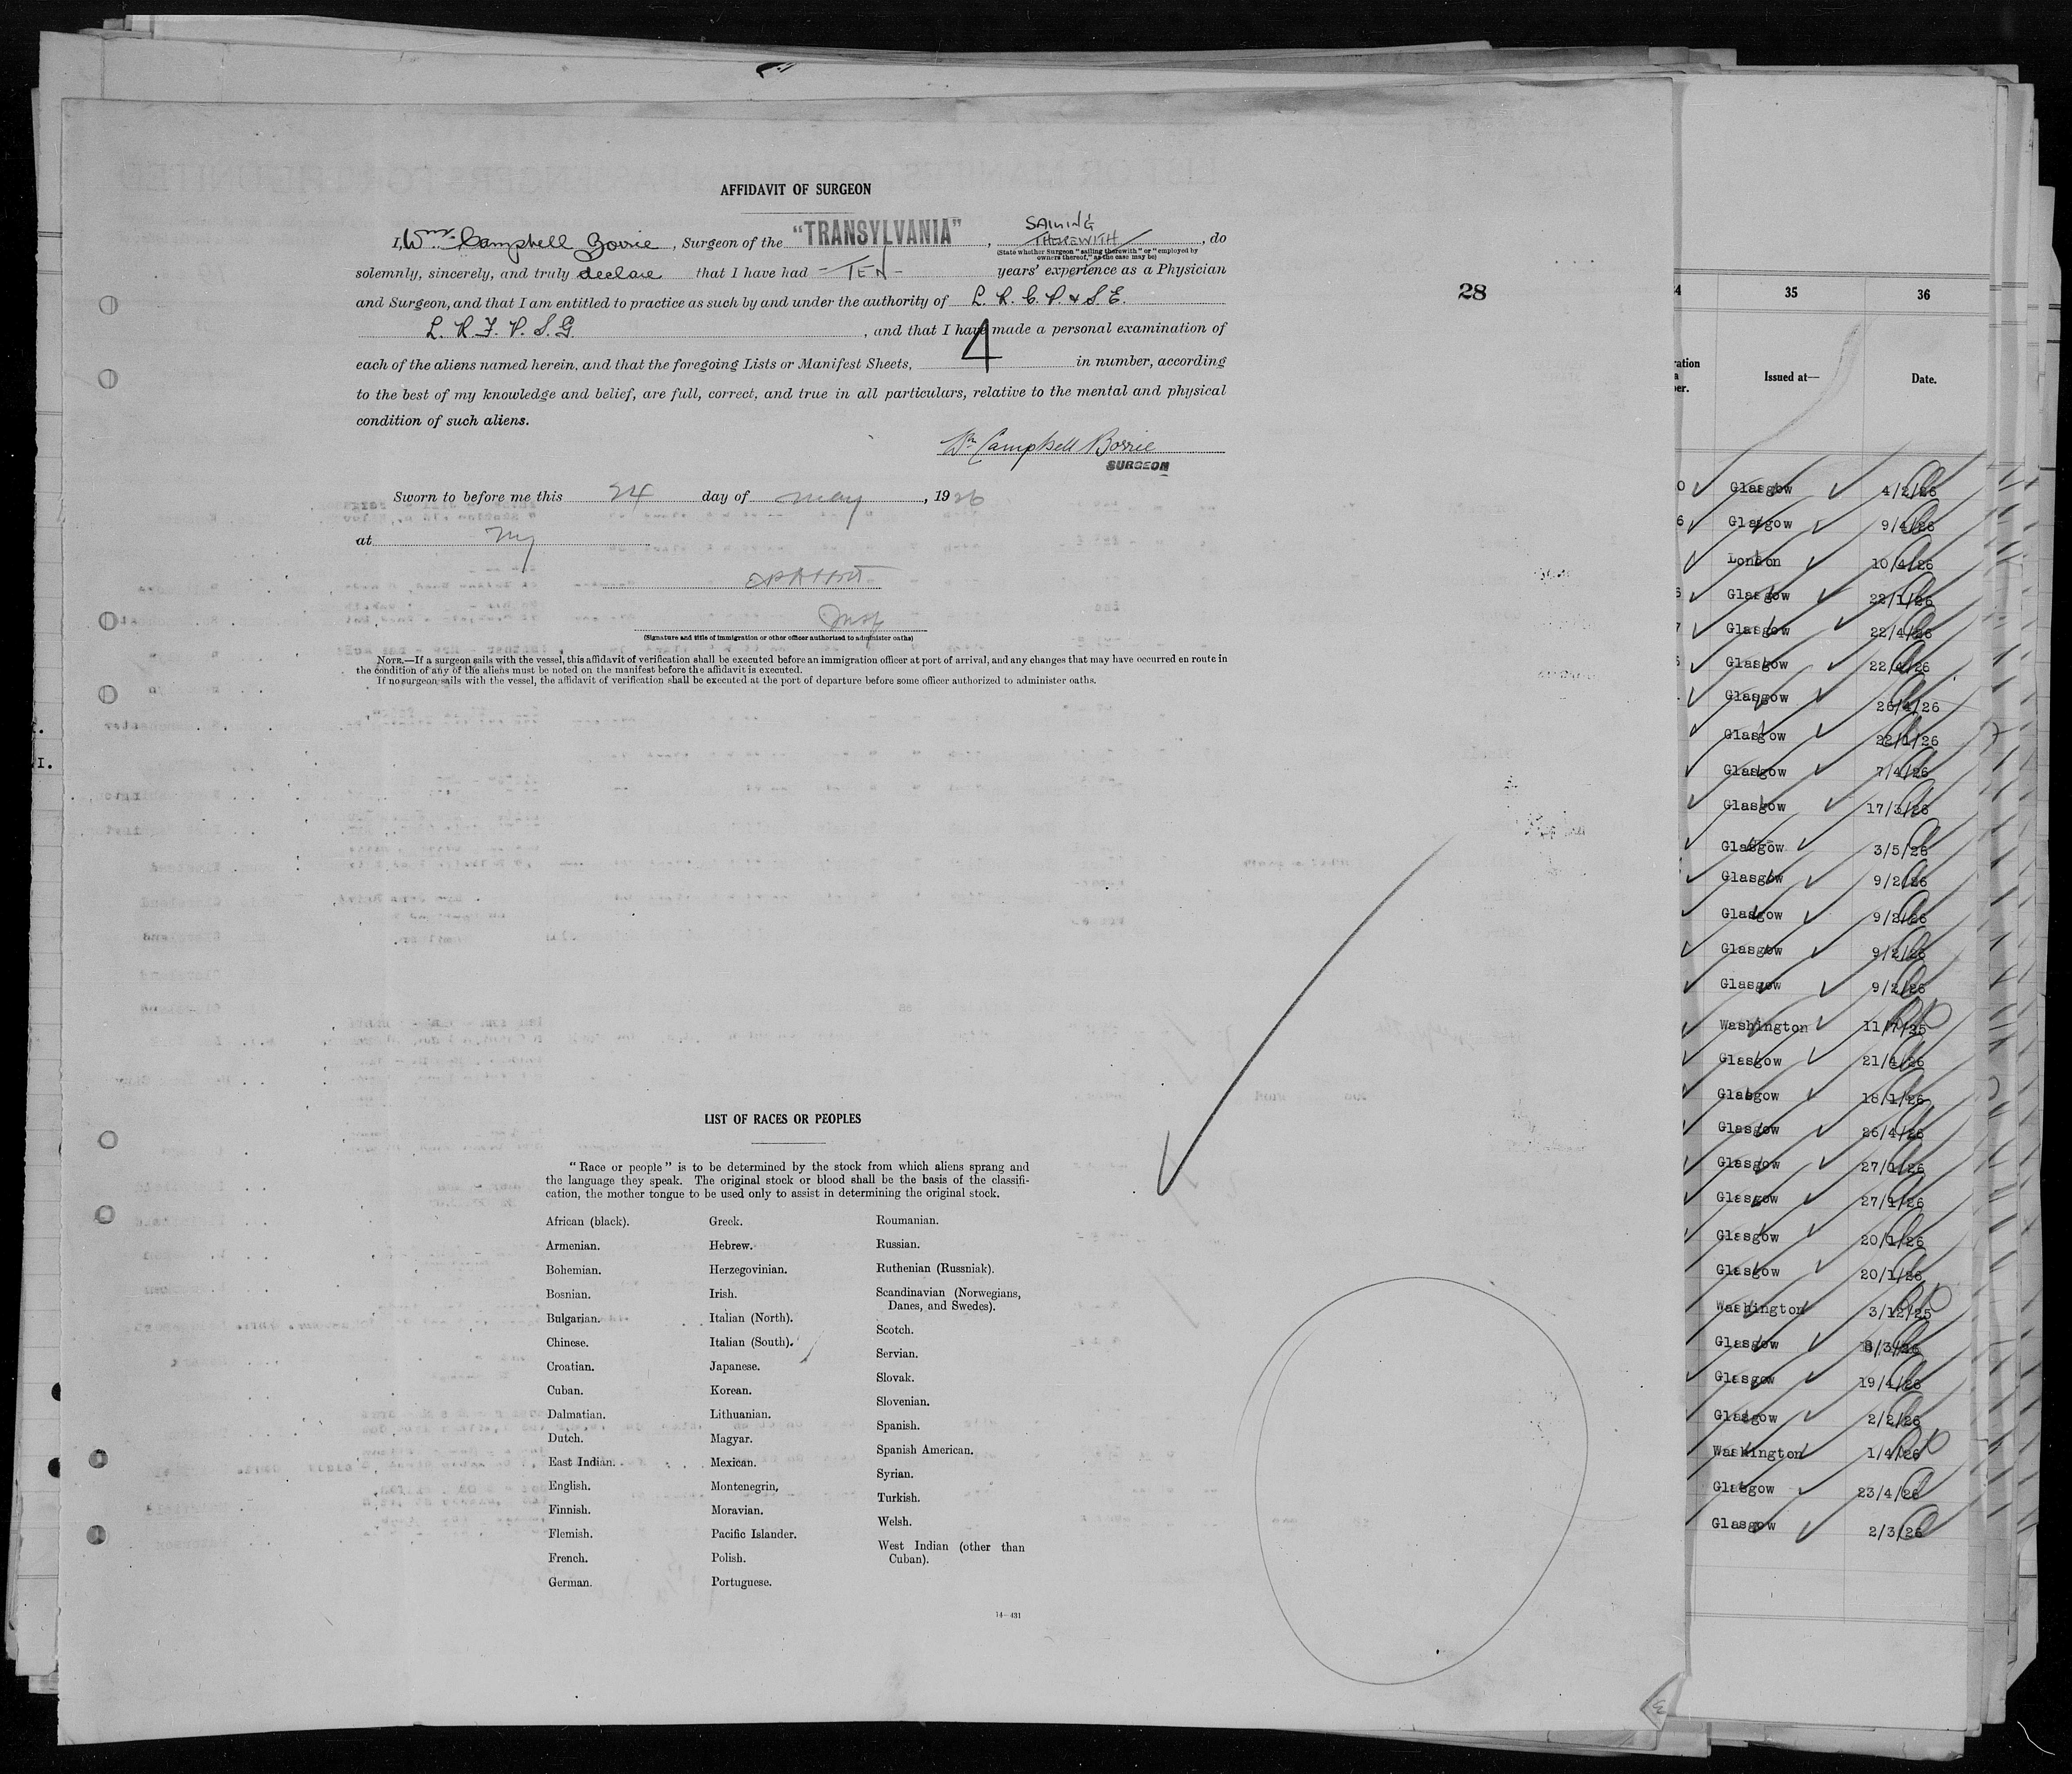 AFFIDAVIT OF SURGEON
SAILING
I, Wm. Campbell Borrie, Surgeon of the "TRANSYLVANIA", THEREWITH, do
(State whether Surgeon "sailing therewith" or "employed by
owners thereof," as the case may be)
solemnly, sincerely, and truly declare that I have had - TEN - years' experience as a Physician
and Surgeon, and that I am entitled to practice as such by and under the authority of L. R. C. P. & S. E.
28
L. R. F. P. S. G. , and that I have made a personal examination of
each of the aliens named herein, and that the foregoing Lists or Manifest Sheets, 4 in number, according
to the best of my knowledge and belief, are full, correct, and true in all particulars, relative to the mental and physical
condition of such aliens.
Wm Campbell Borrie
SURGEON
Sworn to before me this 24 day of May, 1926
at NY
Insp
(Signature and title of immigration or other officer authorized to administer oaths)
NOTE.—If a surgeon sails with the vessel, this affidavit of verification shall be executed before an immigration officer at port of arrival, and any changes that may have occurred en route in
the condition of any of the aliens must be noted on the manifest before the affidavit is executed.
If no surgeon sails with the vessel, the affidavit of verification shall be executed at the port of departure before some officer authorized to administer oaths.
LIST OF RACES OR PEOPLES
"Race or people" is to be determined by the stock from which aliens sprang and
the language they speak. The original stock or blood shall be the basis of the classifi-
cation, the mother tongue to be used only to assist in determining the original stock.
African (black).
Armenian.
Bohemian.
Bosnian.
Bulgarian.
Chinese.
Croatian.
Cuban.
Dalmatian.
Dutch.
East Indian.
English.
Finnish.
Flemish.
French.
German.
Greek.
Hebrew.
Herzegovinian.
Irish.
Italian (North).
Italian (South).
Japanese.
Korean.
Lithuanian.
Magyar.
Mexican.
Montenegrin.
Moravian.
Pacific Islander.
Polish.
Portuguese.
Roumanian.
Russian.
Ruthenian (Russniak).
Scandinavian (Norwegians,
Danes, and Swedes).
Scotch.
Servian.
Slovak.
Slovenian.
Spanish.
Spanish American.
Syrian.
Turkish.
Welsh.
West Indian (other than
Cuban).
14—431
35 36
Issued at— Date.
Glasgow 4/2/26
Glasgow 9/4/26
London 10/4/26
Glasgow 22/1/26
Glasgow 22/4/26
Glasgow 22/4/26
Glasgow 26/4/26
Glasgow 22/1/26
Glasgow 7/4/26
Glasgow 17/3/26
Glasgow 3/5/26
Glasgow 9/2/26
Glasgow 9/2/26
Glasgow 9/2/26
Glasgow 9/2/26
Washington 11/7/25
Glasgow 21/4/26
Glasgow 18/1/26
Glasgow 26/4/26
Glasgow 27/1/26
Glasgow 27/1/26
Glasgow 20/1/26
Glasgow 20/1/26
Washington 3/12/25
Glasgow
Glasgow 19/4/26
Glasgow 2/2/26
Washington 1/4/26
Glasgow 23/4/26
Glasgow 2/3/26